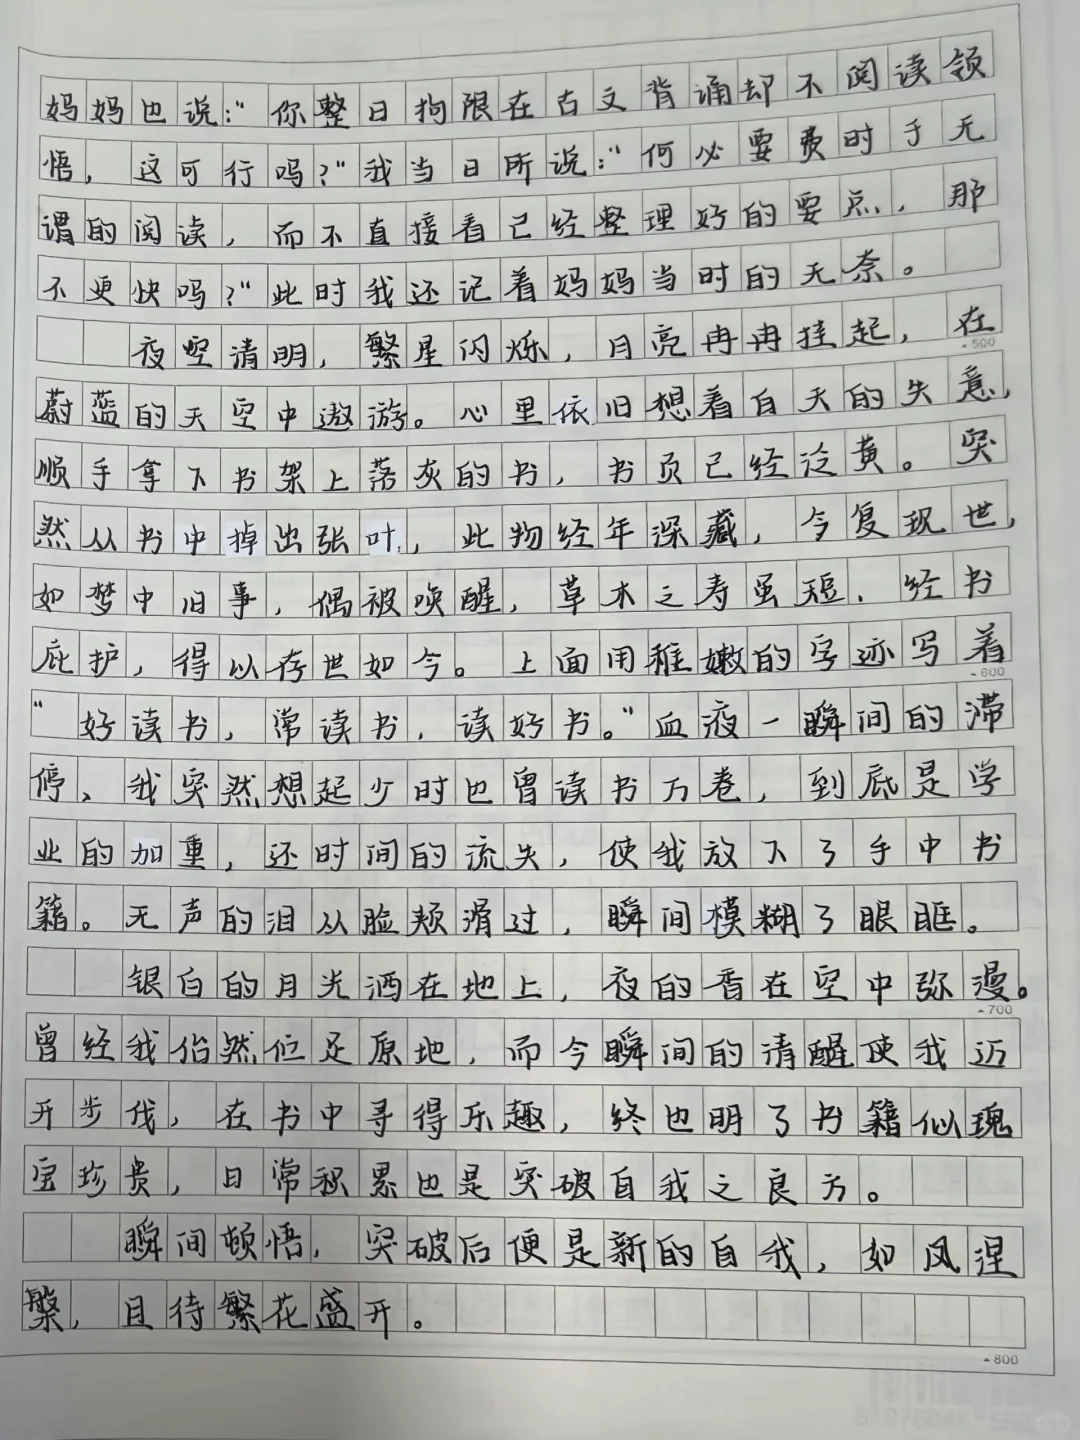 妈妈也说：“你整日拘限在古文背诵却不阅读领
悟，这可行吗？”我当日所说：“何必要费时于无
谓的阅读，而不直接看已经整理好的要点，那
不更快吗？”此时我还记着妈妈当时的无奈。
夜空清明，繁星闪烁，月亮冉冉挂起，在
▲500
蔚蓝的天空中遨游。心里依旧想着白天的失意，
顺手拿下书架上落灰的书，书页已经泛黄。突
然从书中掉出张叶，此物经年深藏，今复现世，
如梦中旧事，偶被唤醒，草木之寿虽短，经书
庇护，得以存世如今。上面用稚嫩的字迹写着
▲600
“好读书，常读书，读好书。”血液一瞬间的滞
停，我突然想起少时也曾读书万卷，到底是学
业的加重，还时间的流失，使我放下了手中书
籍。无声的泪从脸颊滑过，瞬间模糊了眼眶。
银白的月光洒在地上，夜的香在空中弥漫。
▲700
曾经我怡然伫足原地，而今瞬间的清醒使我迈
开步伐，在书中寻得乐趣，终也明了书籍似瑰
宝珍贵，日常积累也是突破自我之良方。
瞬间顿悟，突破后便是新的自我，如风涅
槃，且待繁花盛开。
▲800